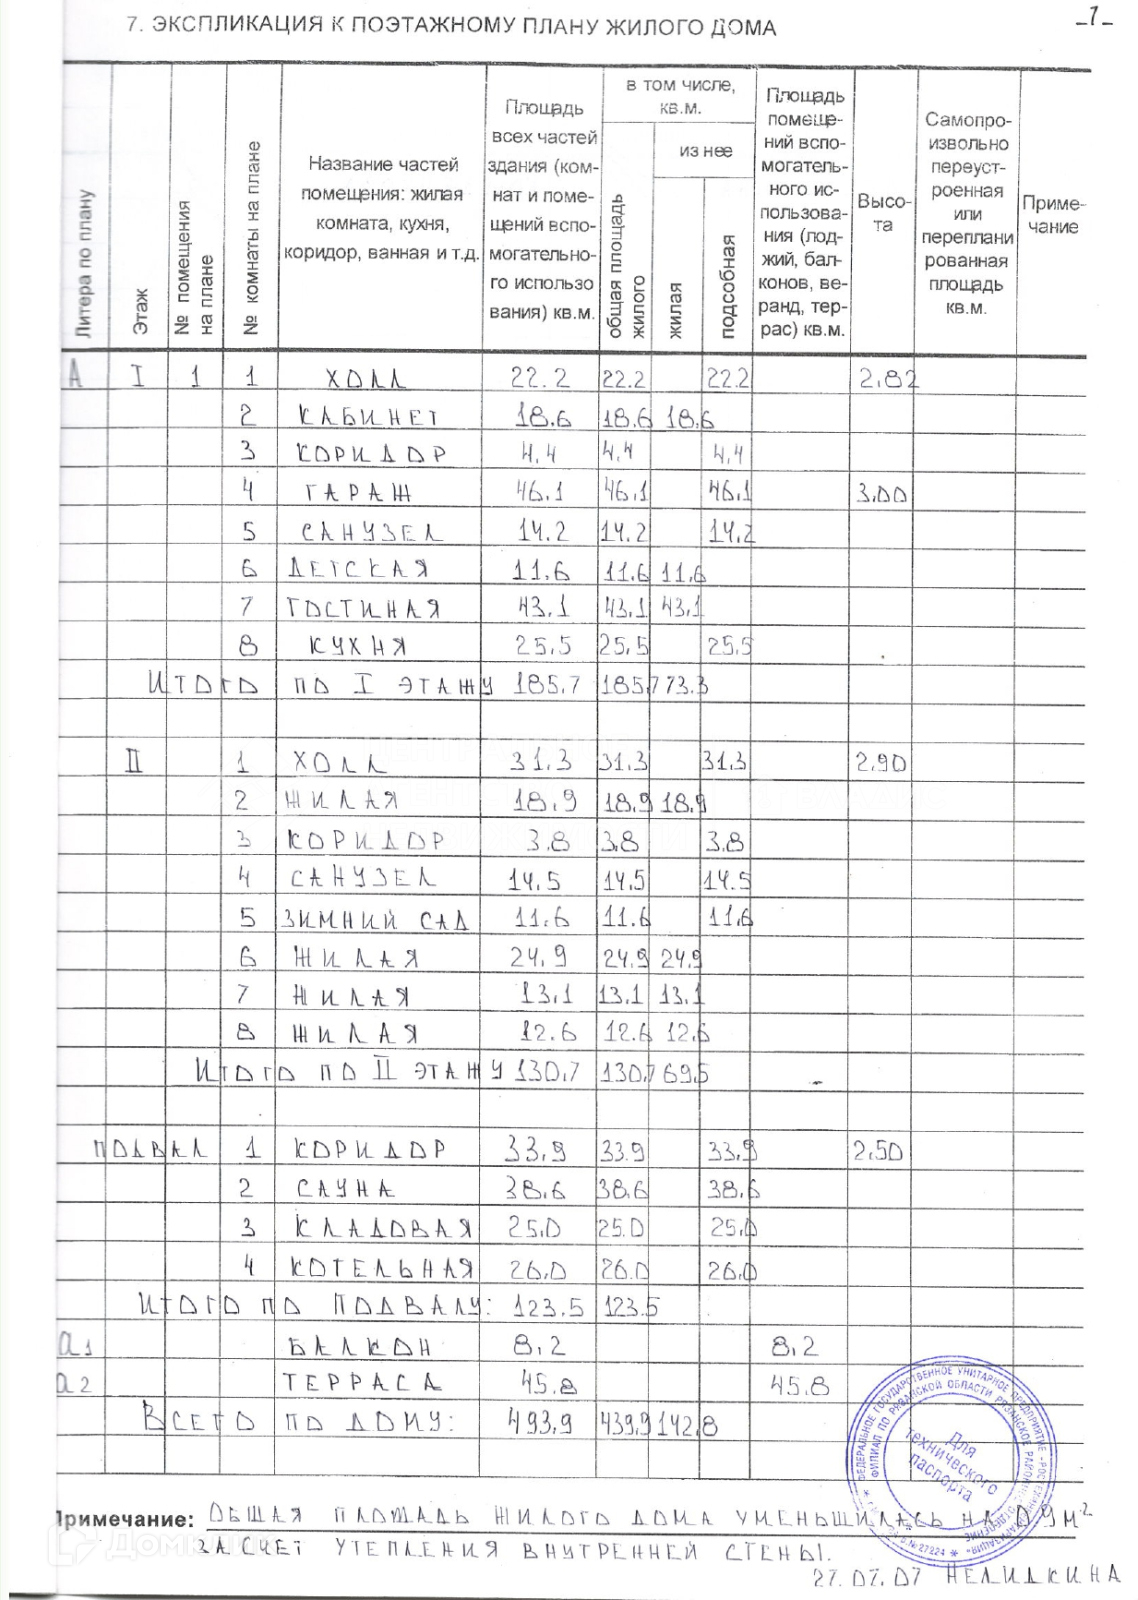 -7-
7. ЭКСПЛИКАЦИЯ К ПОЭТАЖНОМУ ПЛАНУ ЖИЛОГО ДОМА
Литера по плану
Этаж
№ помещения на плане
№ комнаты на плане
Название частей помещения: жилая комната, кухня, коридор, ванная и т.д.
Площадь всех частей здания (комнат и помещений вспомогательного использования) кв.м.
в том числе, кв.м.
общая площадь жилого
из нее
жилая
подсобная
Площадь помещений вспомогательного использования (лоджий, балконов, веранд, террас) кв.м.
Высота
Самопроизвольно переустроенная или перепланированная площадь кв.м.
Примечание
А I 1 1 ХОЛЛ 22.2 22.2 22.2 2.82
2 КАБИНЕТ 18.6 18.6 18.6
3 КОРИДОР 4,4 4,4 4,4
4 ГАРАЖ 46.1 46.1 46.1 3.00
5 САНУЗЕЛ 14.2 14.2 14.2
6 ДЕТСКАЯ 11.6 11.6 11.6
7 ГОСТИНАЯ 43.1 43.1 43.1
8 КУХНЯ 25.5 25.5 25.5
ИТОГО ПО I ЭТАЖУ 185.7 185.7 73.3
II 1 ХОЛЛ 31.3 31.3 31.3 2.90
2 ЖИЛАЯ 18.9 18.9 18.9
3 КОРИДОР 3.8 3.8 3.8
4 САНУЗЕЛ 14.5 14.5 14.5
5 ЗИМНИЙ САД 11.6 11.6 11.6
6 ЖИЛАЯ 24.9 24.9 24.9
7 ЖИЛАЯ 13.1 13.1 13.1
8 ЖИЛАЯ 12.6 12.6 12.6
ИТОГО ПО II ЭТАЖУ 130.7 130.7 69.5
ПОДВАЛ 1 КОРИДОР 33.9 33.9 33.9 2.50
2 САУНА 38.6 38.6 38.6
3 КЛАДОВАЯ 25.0 25.0 25.0
4 КОТЕЛЬНАЯ 26.0 26.0 26.0
ИТОГО ПО ПОДВАЛУ: 123.5 123.5
а1 БАЛКОН 8,2 8,2
а2 ТЕРРАСА 45.8 45.8
ВСЕГО ПО ДОМУ: 493.9 439.9 142.8
Для
технического
паспорта
Примечание: ОБЩАЯ ПЛОЩАДЬ ЖИЛОГО ДОМА УМЕНЬШИЛАСЬ НА 0.9 М²
ЗА СЧЕТ УТЕПЛЕНИЯ ВНУТРЕННЕЙ СТЕНЫ.
27.07.07 НЕЛИДКИНА